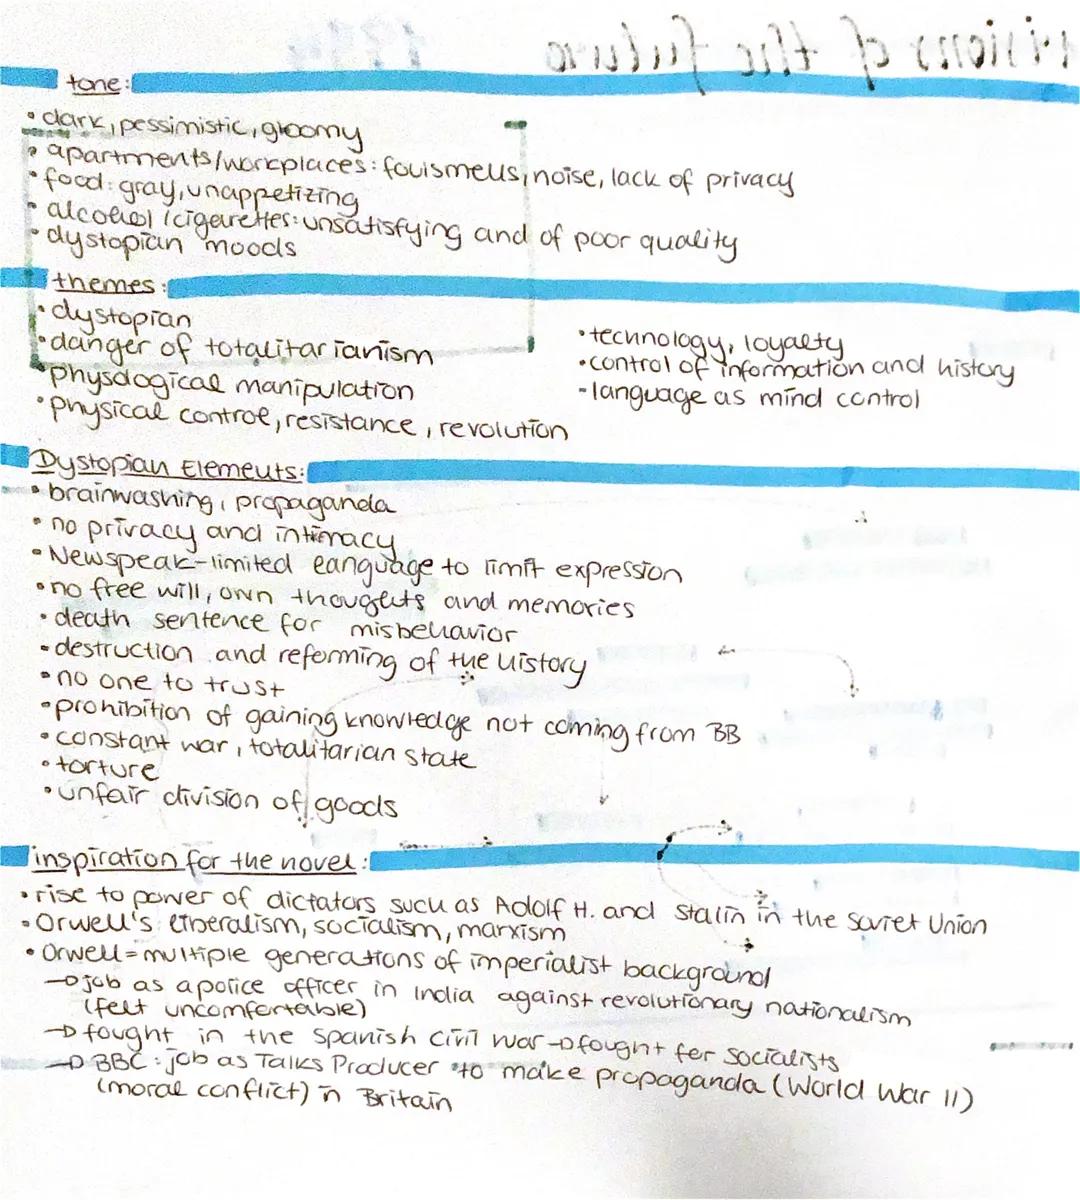 visions of the future 1984
tone:
• dark, pessimistic, gloomy
• apartments/workplaces: foul smells, noise, lack of privacy
• food: gray, unappetizing
• alcohol/cigarettes: unsatisfying and of poor quality
• dystopian moods
themes:
• dystopian
• danger of totalitarianism
• physological manipulation
• physical control, resistance, revolution
• technology, loyalty
• control of information and history
- language as mind control
Dystopian Elements:
• brainwashing, propaganda
• no privacy and intimacy
• Newspeak-limited language to limit expression
• no free will, own thoughts and memories
• death sentence for misbehavior
• destruction and reforming of the history
• no one to trust
• prohibition of gaining knowledge not coming from BB
• constant war, totalitarian state
• torture
• unfair division of goods
inspiration for the novel:
• rise to power of dictators such as Adolf H. and Stalin in the Soviet Union
• Orwell's liberalism, socialism, marxism
• Orwell = multiple generations of imperialist background
→ job as a police officer in India against revolutionary nationalism
(felt uncomfortable)
→ fought in the Spanish Civil War → fought for socialists
→ BBC: job as Talks Producer to make propaganda (World War II)
(moral conflict) in Britain